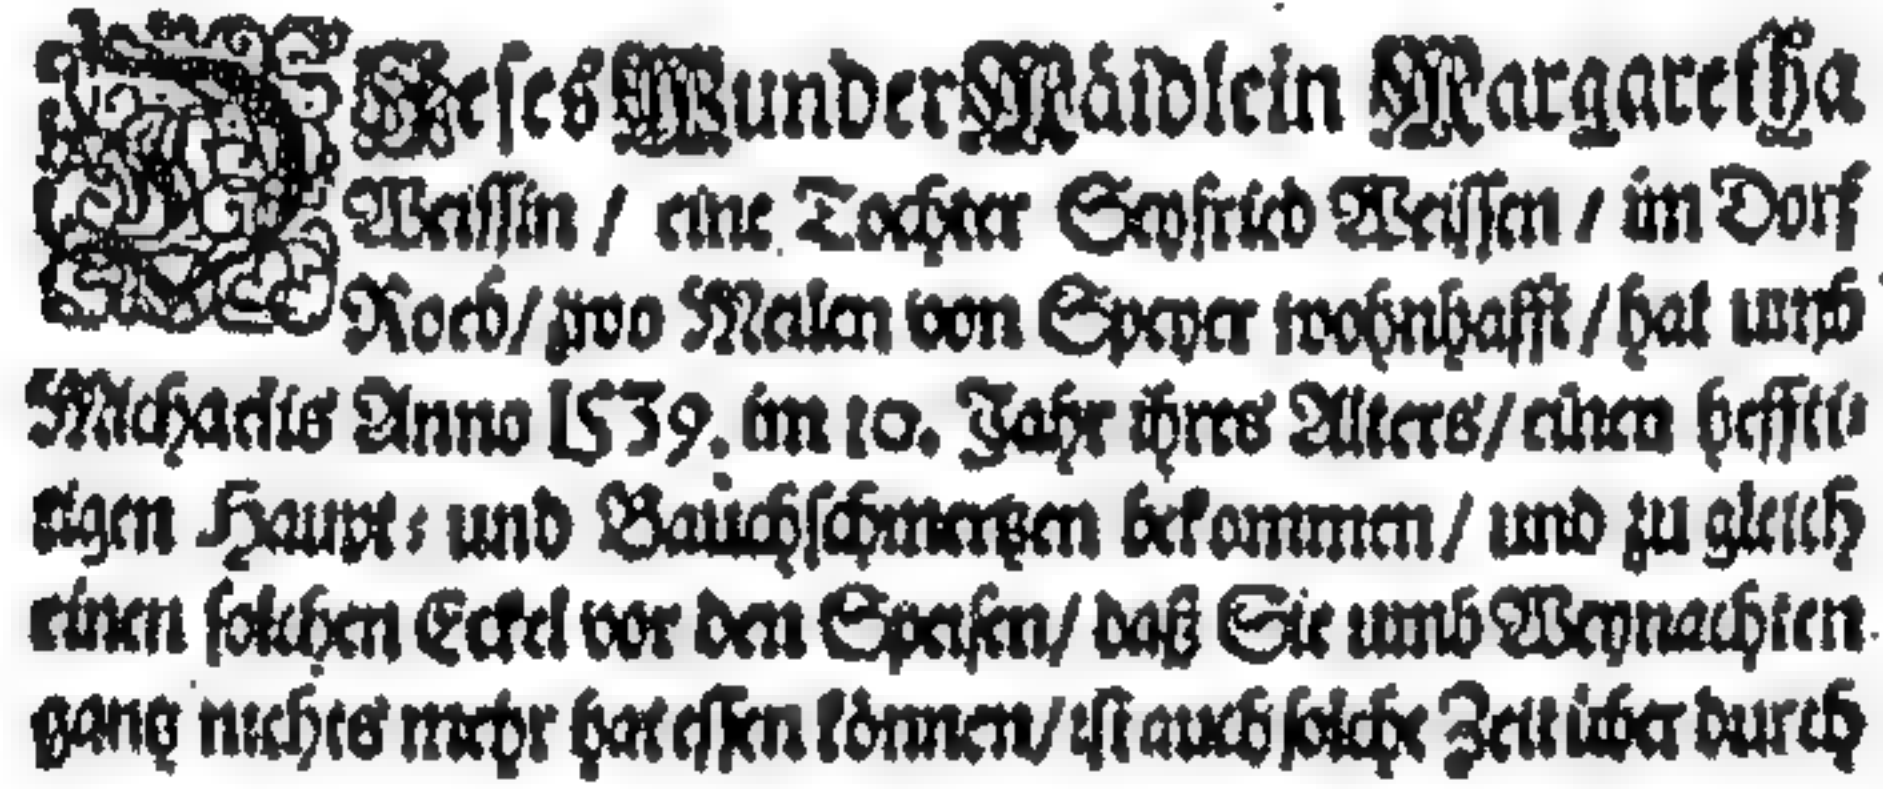 DIeses WunderMäidlein Margaretha
Weissin / eine Tochter Seyfried Weissen / im Dorf
Roed/ zwo Meilen von Speyer wohnhafft / hat umb
Michaelis Anno 1539. im 10. Jahr ihres Alters/ einen heffti-
tigen Haupt- und Bauchschmertzen bekommen/ und zu gleich
einen solchen Eckel vor den Speisen/ daß Sie umb Weynachten
gantz nichts mehr hat essen können/ ist auch solche Zeit über durch